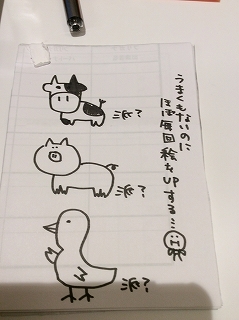 うまくもないのに
ほぼ毎回絵をupする…
派?
派?
派?